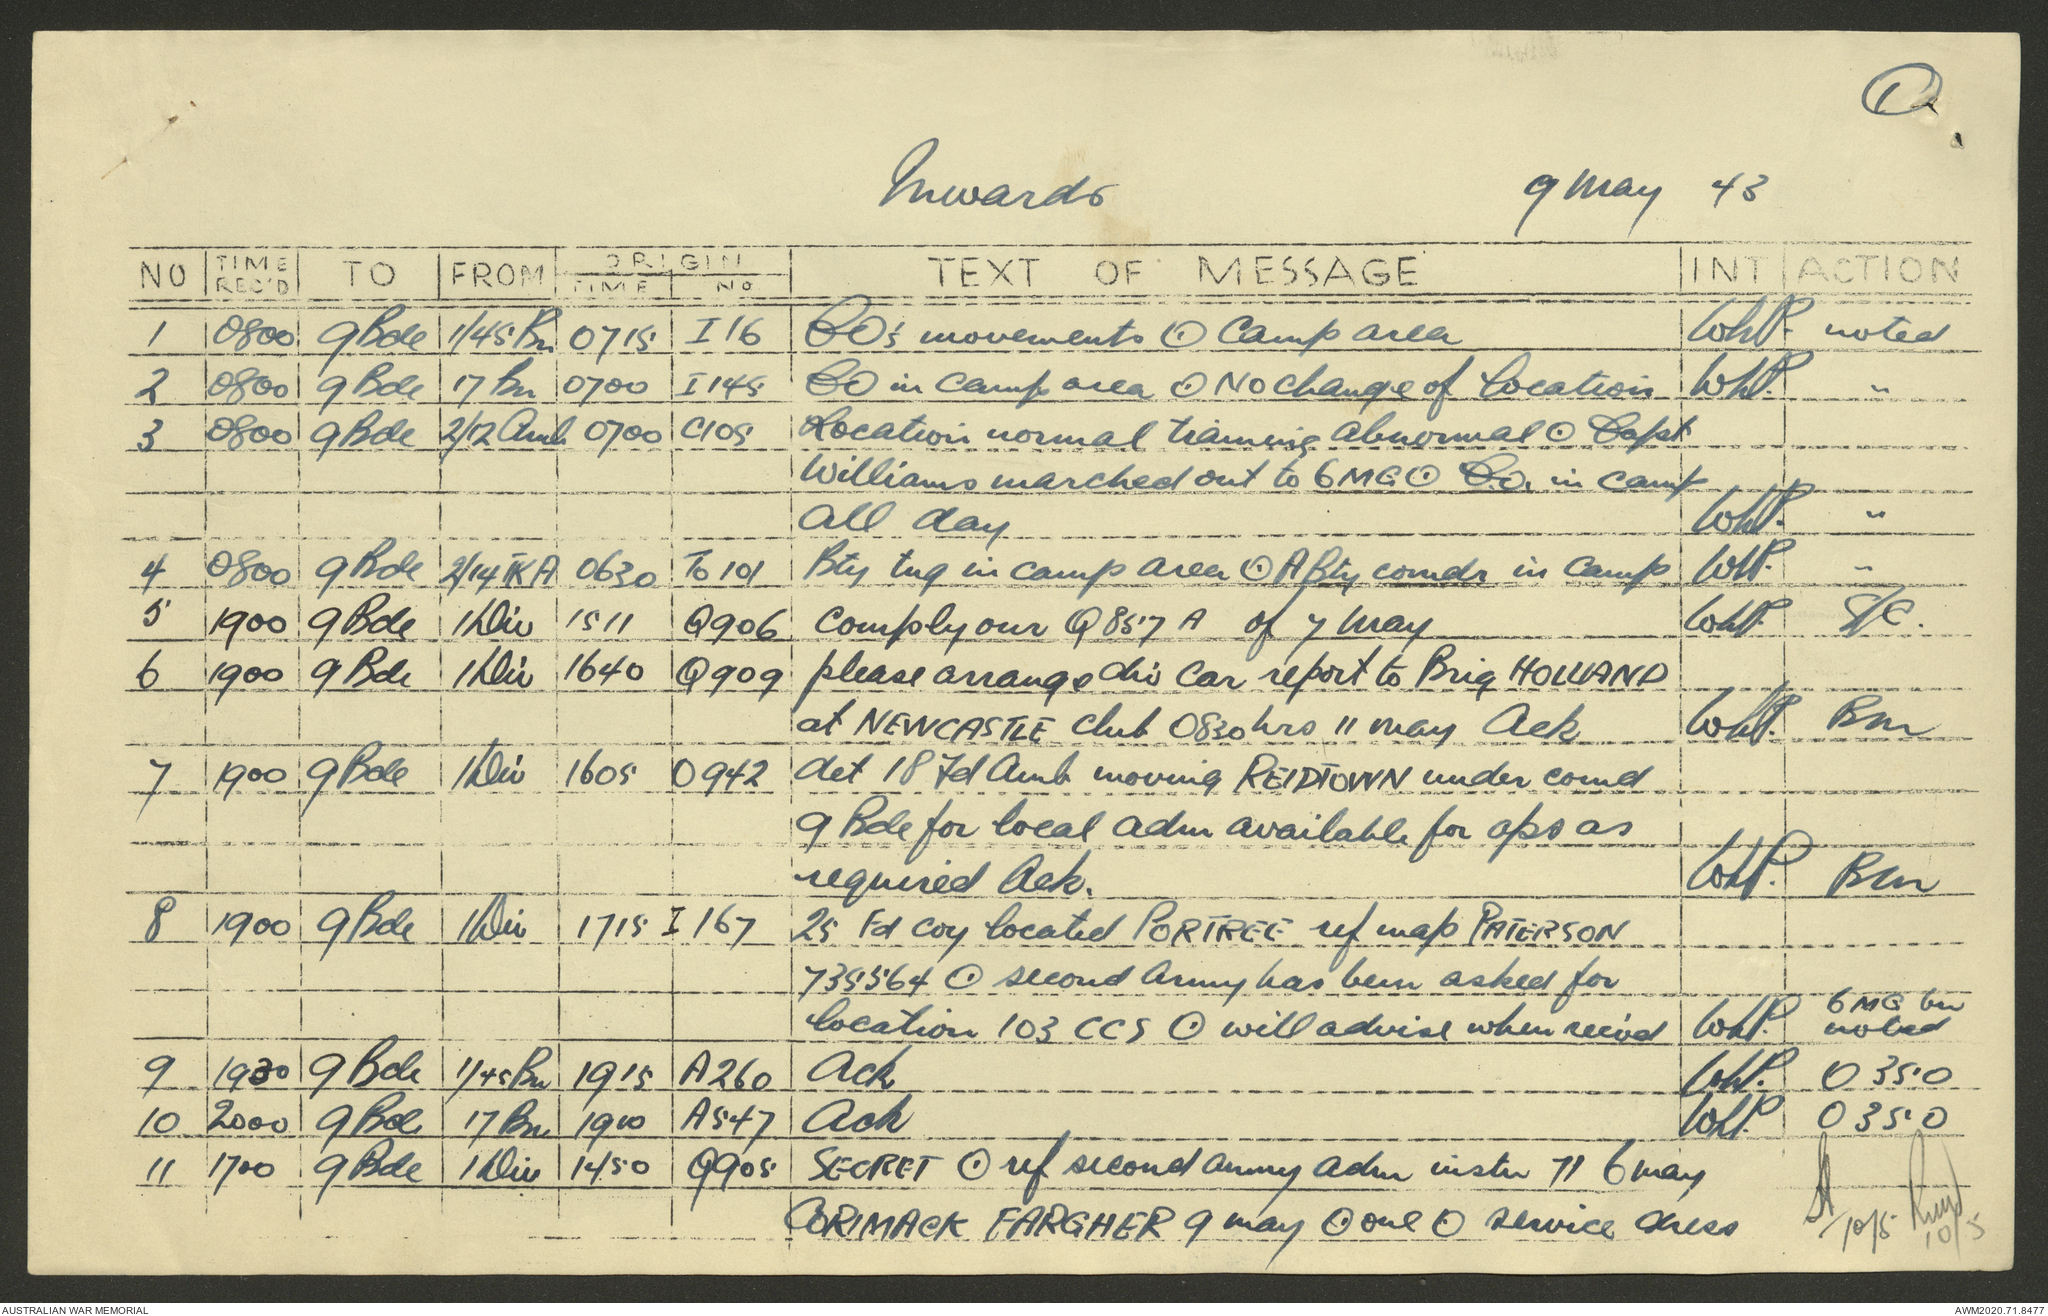 1
Inwards 9 May 43
NO TIME REC'D TO FROM ORIGIN TIME No TEXT OF MESSAGE INT ACTION
1 0800 9 Bde 1/45 Bn 0715 I 16 CO's movements ⊙ Camp area WhP. noted
2 0800 9 Bde 17 Bn 0700 I 145 CO in camp area ⊙ No change of location WhP. "
3 0800 9 Bde 2/12 Amb 0700 C105 Location normal training abnormal ⊙ Capt
Williams marched out to 6 MG ⊙ C.O. in camp
all day WhP. "
4 0800 9 Bde 2/14 0630 To 101 Bty tng in camp area ⊙ A Bty comdr in camp WhP. "
5 1900 9 Bde 1 Div 1511 Q906 comply our Q857 A of 7 May WhP. S/C.
6 1900 9 Bde 1 Div 1640 Q909 please arrange div car report to Brig HOLLAND
at NEWCASTLE club 0830 hrs 11 may Ack WhP. BM
7 1900 9 Bde 1 Div 1605 O942 det 18 Fd Amb moving REIDTOWN under comd
9 Bde for local adm available for ops as
required Ack. WhP. BM
8 1900 9 Bde 1 Div 1715 I 167 25 Fd coy located PORTREE ref map PATERSON
735564 ⊙ second Army has been asked for 6 MG bn
location 103 CCS ⊙ will advise when recivd WhP. noted
9 1930 9 Bde 1/45 Bn 1915 A260 Ack WhP. O 350
10 2000 9 Bde 17 Bn 1910 A547 Ack WhP O 350
11 1700 9 Bde 1 Div 1450 Q905 SECRET ⊙ ref second army adm instn 71 6 may
CORIMACK FARGHER 9 may ⊙ one ⊙ service dress
10/5 10/5
AUSTRALIAN WAR MEMORIAL AWM2020.71.8477